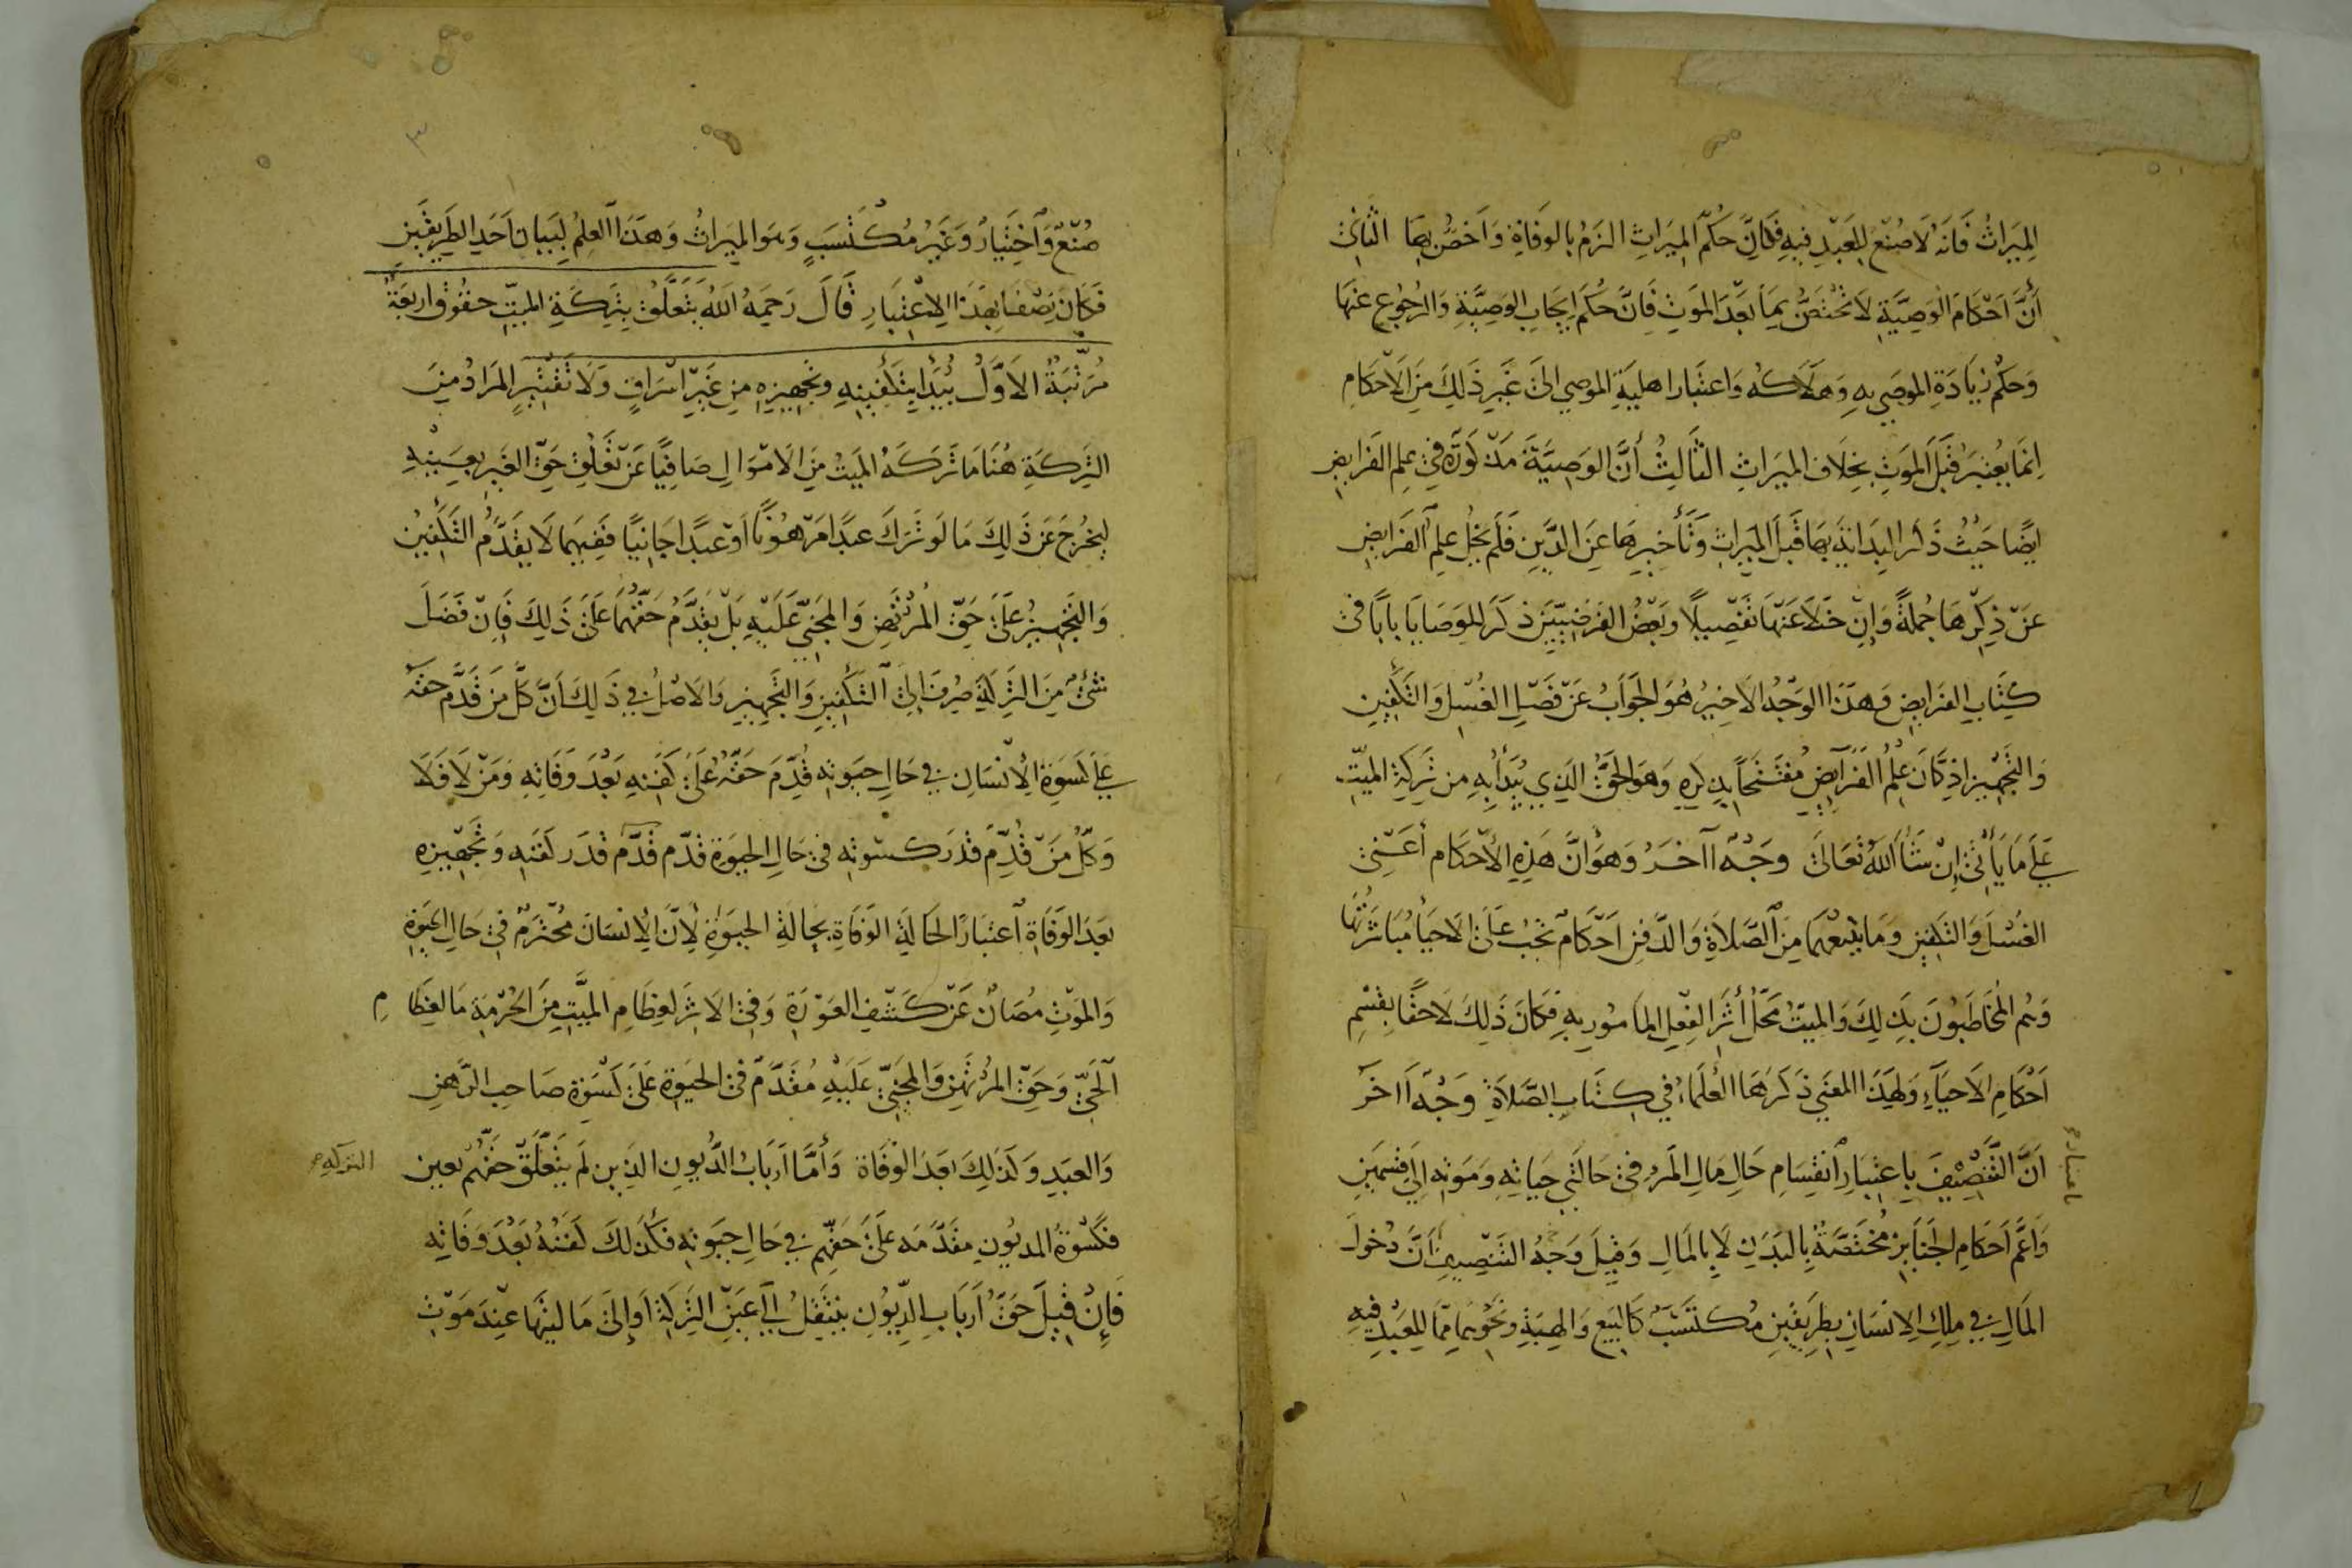 الميراثُ فَانَهُ لَا صُنْعَ لِلعَبْدِ فيهِ فَكَانَ حُكْمُ الميرَاثِ الزَمُ بالوَفَاةِ وَاَخصُّ بِهَا الثَانِي
أَنَّ اَحْكَامَ الوَصِيَّةِ لَا تَخْتَصُّ بِمَا بَعْدَ المَوتِ فَانَّ حُكْمَ اِيجَابِ الوَصِيَّةِ وَالرُجُوعِ عَنهَا
وَحكْمُ زِيَادَةِ الموصَي بهِ وَهَلَاكُه وَاعتبَار اهليَةِ الموصِي الىَ غَيرِ ذَلِكَ مِنَ الاَحكَامِ
اِنمَا يُعْتبَرُ قبْلَ الموتِ بخِلَافِ الميرَاثِ الثَالِثُ أَنَّ الوَصِيَّةَ مَذكوَرَة فِي عِلمِ الفرَايِضِ
ايضًا حَيْثُ ذَكَر البدَايَة بهَا قَبلَ الميراثِ وَتَأخيرهَا عَنِ الدَّينِ فَلَم يَخْلُ عِلمُ الفرَايضِ
عَنْ ذِكْرِهَا جُملةً وَاِنْ خَلاَ عَنهَا تَفْصِيلًا وَبَعْضُ الفَرَضيّيَنَ ذكَرَ للوَصَايَا بابًا فى
كِتَابِ الفرَايضِ وَهذَا الوَجْهُ الاخيرُ هُوَ الجَوَابُ عَنْ فَصْلِ الغُسْلِ وَالتَكْفِينِ
وَالتَّجْهِيزِ اذ كَانَ عِلمُ الفَرَايضِ مُفْتَتَحاً بذِكرِهِ وَهوَ الحَقُّ الذِي يُبْدَأُ بِهِ من تَرِكَةِ الميّتِ
عَلَى مَا يَأتى اِنْ شَا اللهُ تعَالىَ وجَهٌ آخَرُ وَهوَ أنَّ هَذِهِ الأَحكَام أعَني
الغسْلَ وَالتَكفِينَ وَمَا يتبعهمَا مِنَ الصَّلاَةِ وَالدَفنِ احَكَامٌ تَجبُ عَلىَ الاَحيَاءِ مُبَاشَرَتُهَا
وَهُم المخَاطَبُونَ بذَلِكَ وَالميتُ مَحَلّ أَثَرِ الفِعْلِ المامُورِ بهِ فَكَانَ ذَلِكَ لَاحقًا بقِسْمِ
اَحْكَامِ الاحيَاءِ وَلهَذَا المعَني ذَكرَهَا العُلمَاء فِي كِتَابِ الصَّلاَةِ وَجْهٌ آخَرَ
اَنَّ التَّنْصِيْفَ بِاِعتِبَارِ اَنقِسَامِ حَالِ مَالِ المَرءِ فِي حَالَتَي حيَاتهِ وَمَوتِهِ اِلىَ قِسْمَينِ
باعتبار
وَاَعَمّ اَحكَام الجَنَايزِ مُخْتَصَّة بِالبَدَنِ لَا بِالمَالِ وَقيِلَ وَجْهُ التَنْصِيفِ اَنَّ دُخولَ
المَالِ فِي مِلِكِ الاِنسَانِ بطِرِيقَيْنِ مُكْتسَبٌ كَالبَيعِ وَالهِبَةِ وَنَحْوِهمَا ممَّا للِعَبْدِ فيِهِ
٣
صُنْعٌ وَاَختِيَارٌ وَغَيْرُ مُكْتَسَبٍ وَهوَ الميَراثُ وَهذَا العِلمُ لبَيَانِ اَحَدِ الطَرِيقَينِ
فَكَانَ نِصْفَا بهَذَا الِاعْتبَارِ قَالَ رَحِمَهُ اللهُ يَتَعَلَّقُ بِتِركَةِ الميّتِ حقوق اَربعَةٌ
مُرَتّبَةٌ الاَوَّلُ يُبْدَأُ بِتَكْفِينِهِ وتَجهِيزِهِ مِن غَيِرِ اسْرَافٍ وَلاَ تَقْتِيرٍ المرَادُ مِنَ
التِركَةِ هُنَا مَا تَرَكَهُ المَيتُ مِنَ الاَمْوَالِ صَافِيًا عَنْ تَعَلُقِ حَقِّ الغَيرِ بعَيْنهِ
ليخْرُجَ عَن ذَلِكَ مَا لَو تَرَكَ عَبدًا مَرْهونًا اَوْ عَبدًا جَانيًا ففِيهما لَا يتقَدَّمُ التَكفِينُ
وَالتَجْهِيزُ عَلىَ حَقّ المُرْتَهِنِ وَالمجَني عَلَيْهِ بَلْ يُقدَّمُ حَقّهُمَا عَلىَ ذَلِكَ فَاِن فَضَلَ
شَيْءٌ مِنَ التِركَةِ صُرِفَ اِلىَ التكفِينِ وَالتَجْهِيزِ وَالاَصْلُ فِي ذَلِكَ اَنَّ كلَّ مَن قَدَّمَ حقّهُ
عَلى كسوَةِ الاِنْسَانِ في حَالِ حيَوتهِ قُدّمَ حَقّهُ عَلىَ كَفَنِهِ بَعْدَ وَفَاتِهِ وَمَنْ لاَ فَلاَ
وَكُلّ مَنْ قُدِّمَ قدْرَ كسْوتهِ فى حَالِ الحيوَة قدّم قُدّمَ قدْرَ كَفَنهِ وَتَجْهِيزِهِ
بعَدَ الوَفَاةِ اعتبَارًا لحَالةِ الوَفَاةِ بحِالةِ الحيَوةِ لأنَّ الاِنسَانَ مُحْترَمٌ فِي حَالِ الحيَوةِ
وَالموَتِ مُصَانٌ عَنْ كَشْفِ العَوْرَةِ وَفِي الاَثَرِ لعِظَامِ الميَّتِ مِنَ الحُرْمَةِ مَا لعِظَامِ
اَلحَيّ وَحَقّ المُرْتَهِنِ وَالمجَنيّ عَليْهِ مُقَدَّمٌ فى الحيَوةِ عَلىَ كَسْوَةِ صَاحِبِ الرَّهنِ
وَالعَبدِ وَكذَلِكَ بَعَدَ الوفَاة وَأمَّا اَربَابُ الدُّيونِ الذِينِ لَم يتَعَلَّقْ حَقّهُم بعَينِ
التركة
فكسْوَةُ المديُونِ مقَدَّمَه عَلىَ حَقّهِم في حَالِ حيَوتهِ فكَذَلكَ كَفَنُهُ بَعْدَ وَفَاتِهِ
فَاِنْ قيِلَ حَقّ اَربَابِ الدِّيُونِ ينتَقِلُ اِلىَ عَينِ التَرِكَةِ اَو اِلىَ مَاليَتهَا عنْدَ مَوْتِ